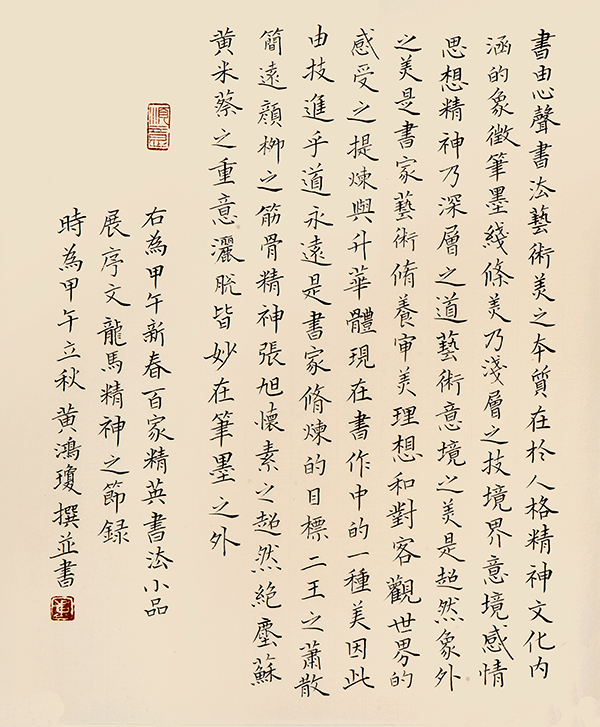 書由心聲書法藝術美之本質在於人格精神文化内
涵的象徵筆墨綫條美乃淺層之技境界意境感情
思想精神乃深層之道藝術意境之美是超然象外
之美是書家藝術脩養审美理想和對客觀世界的
感受之提煉與升華體現在書作中的一種美因此
由技進乎道永遠是書家脩煉的目標二王之蕭散
簡遠顔柳之筋骨精神張旭懷素之超然絶塵蘇
黄米蔡之重意灑脱皆妙在筆墨之外
右為甲午新春百家精英書法小品
展序文龍馬精神之節録
時為甲午立秋黄鴻瓊撰並書